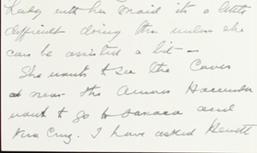 with her maid it's a little
difficult doing this unless she
can be assisted a bit —
She wants to see the Caves
near the
want to go to Oaxaca and
Vera Cruz. I have asked